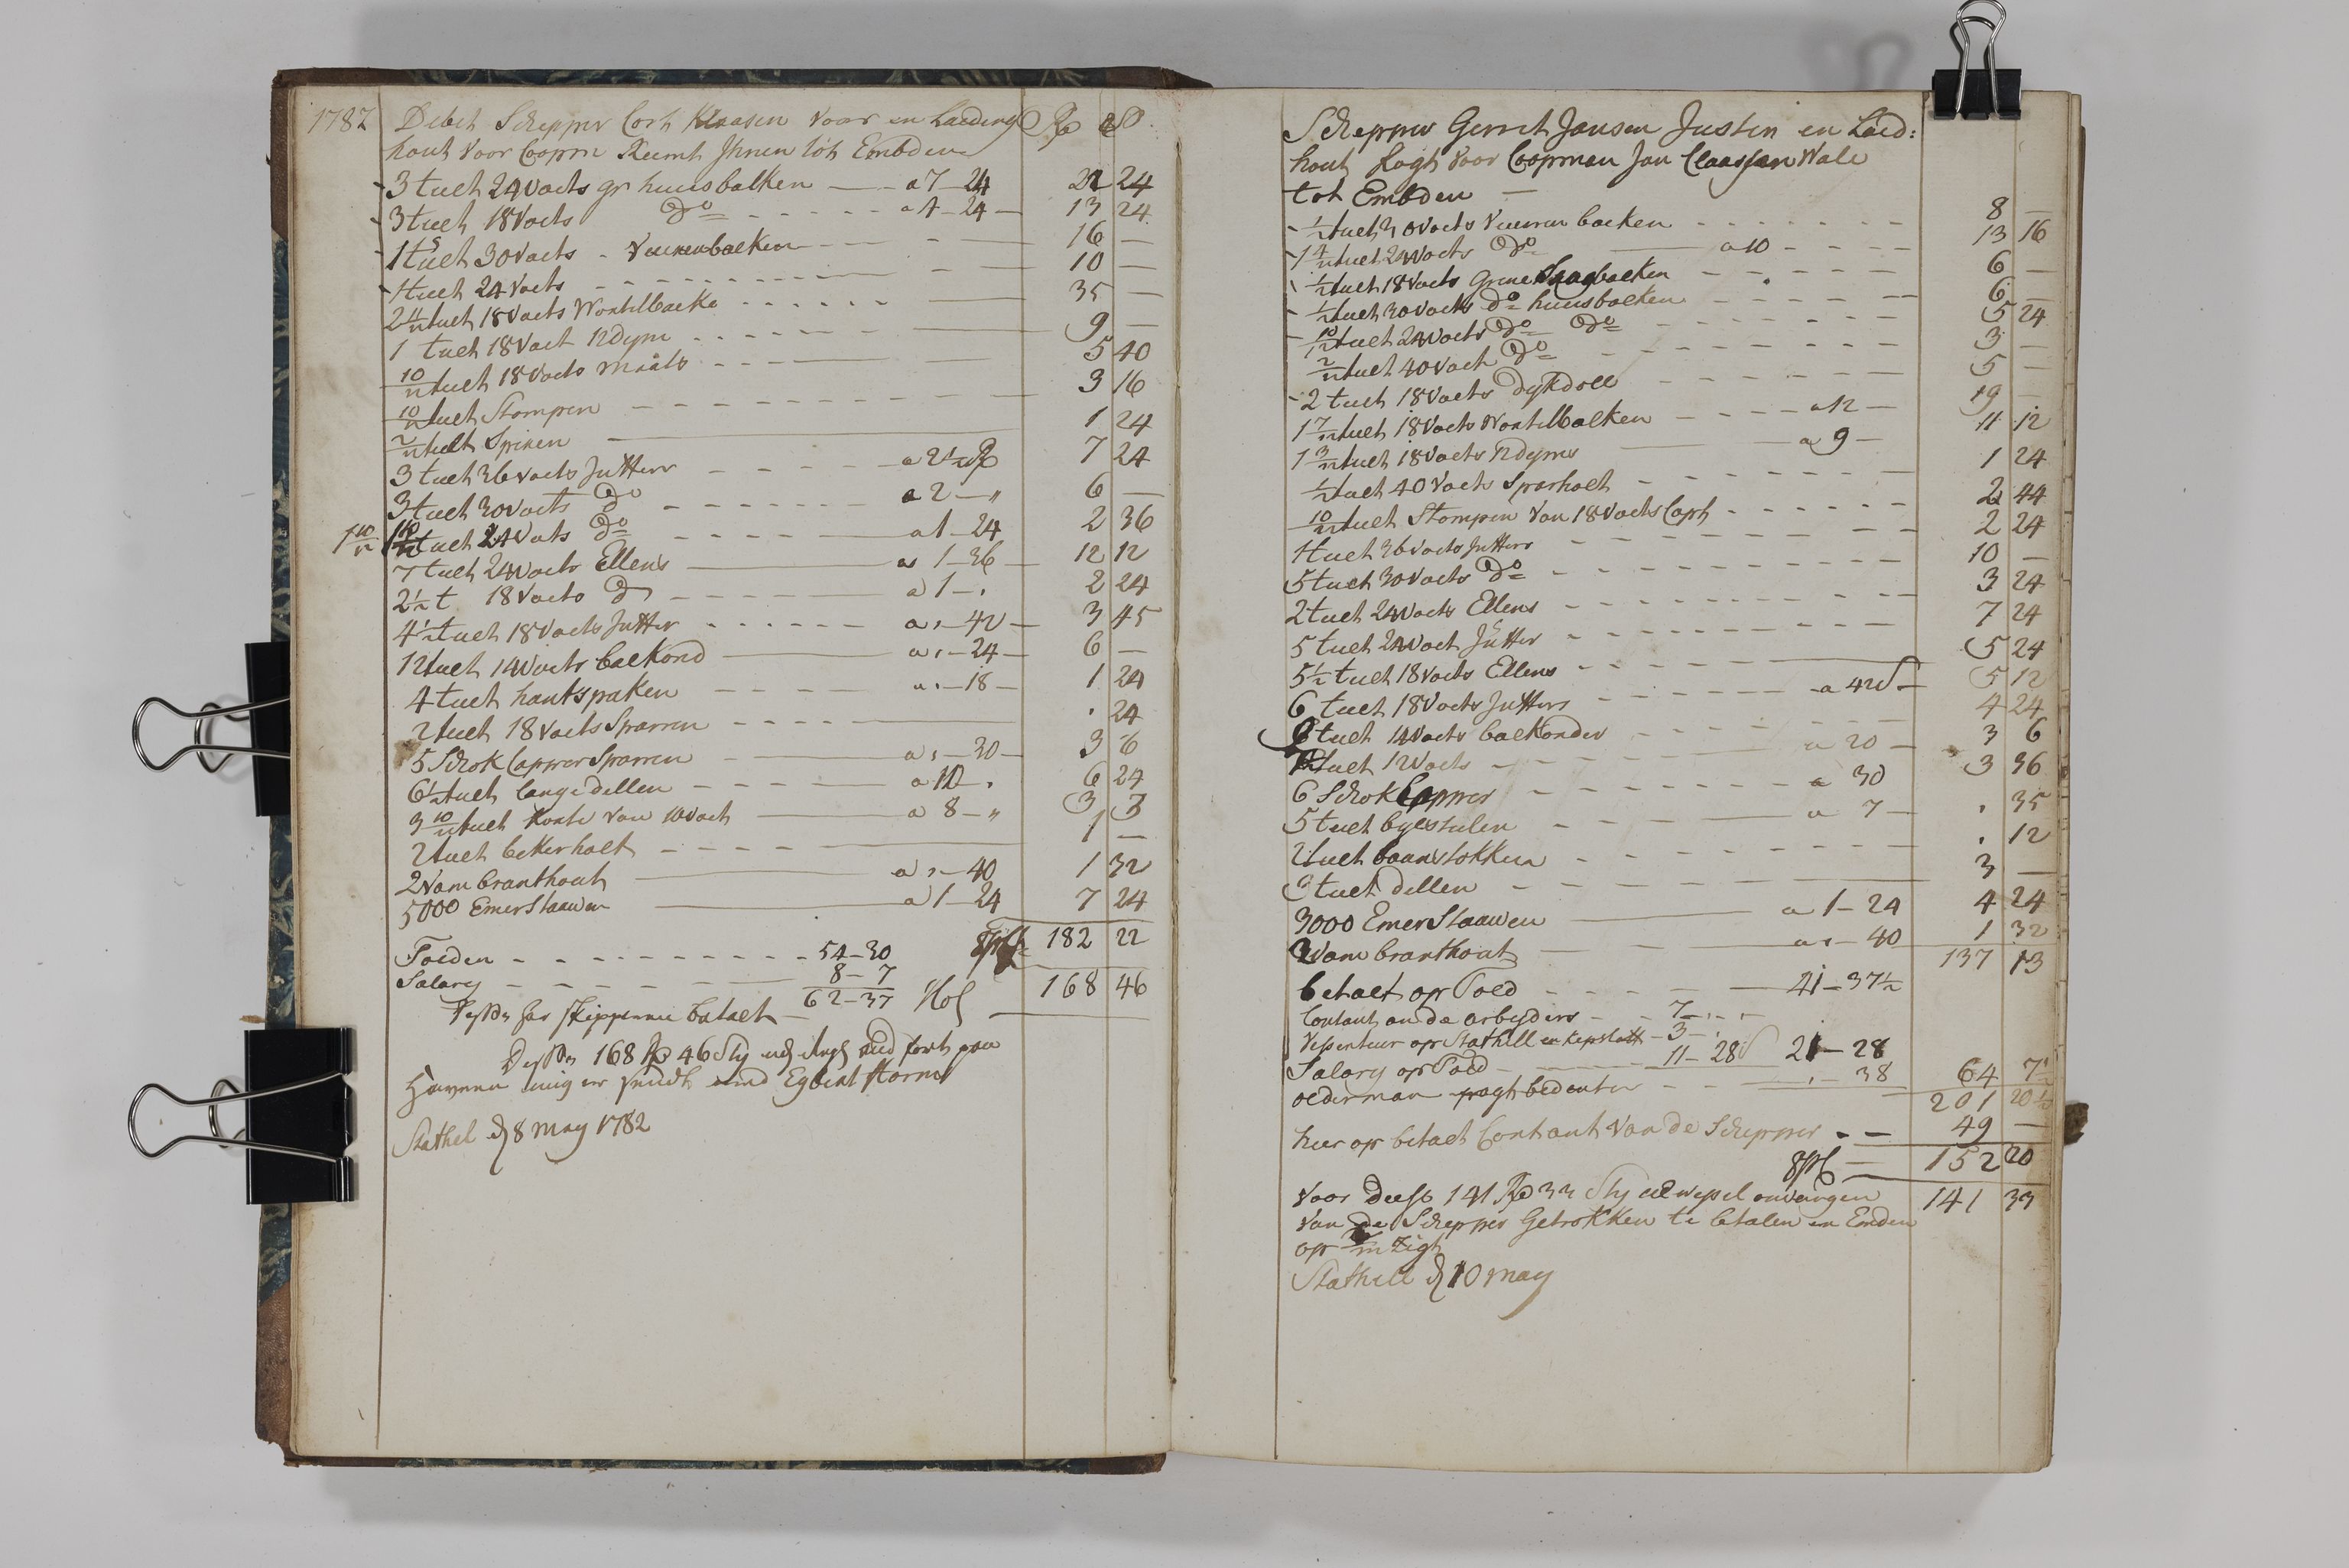 1782 Debet Schepper Cort Klaasen voor en Laeding Rd S
hout voor Coopm Reemt Jhnen tot Embden
3 tuelt 24 voets gr huusbalken a 7 - 24 22 24
3 tuelt 18 voets do a 4 - 24 13 24
1 tuelt 30 voets Vuurenbaelken 16 —
1 tuelt 24 voets 10 —
2 11/12 tuelt 18 voets Wortelbaelke 35 —
1 tuelt 18 voet 12 dym 9 —
10/12 tuelt 18 voets maats 5 40
10/12 tuelt Stompen 3 16
2/12 tuelt Spiren 1 24
3 tuelt 36 voets Jutters a 2 1/2 Rd 7 24
3 tuelt 30 voets do a 2 — " 6 —
1 10/12 tuelt 24 voets do a 1 - 24 2 36
7 tuelt 24 voets Ellens a 1 - 36 12 12
2 1/2 t 18 voets do a 1 - . 2 24
4 1/2 tuelt 18 voets Jutter a , - 42 3 45
12 tuelt 14 voets balkond a , - 24 6 —
4 tuelt hantspaken a , - 18 1 24
2 tuelt 18 voets Sparren . 24
5 Schok Capper Sparren a , - 30 3 6
6 1/2 tuelt lange dellen a 12 . 6 24
3 10/12 tuelt Korte van 10 voet a 8 - " 3 3
2 tuelt bekerholt 1 —
2 Vam branthout a , - 40 1 32
5000 Emer Staawen a 1 - 24 7 24
Spc 182 22
Toeden 54 - 30
Salary 8 - 7
62 - 37 Hol 168 46
betaelt
168 Rd 46 Sty
Egbert Storm
Stathel d 8 may 1782
Schepper Gerret Jansen Justin en Laed:
hout Logh voor Coopman Jan Claassen Wale
tot Embden
1/2 tuelt 30 voets Vuuren baelken 8 —
1 4/12 tuelt 24 voets do a 10 13 16
1/2 tuelt 18 voets Grene Saagbaelken 6 —
1/2 tuelt 30 voets do huusbaelken 6 —
10/12 tuelt 24 voets do do 5 24
2/12 tuelt 40 voet do 3 —
2 tuelt 18 voets dykdoll 5 —
1 7/12 tuelt 18 voets Wortelbalken a 12 19 —
1 3/12 tuelt 18 voets 12 dyms a 9 11 12
1/2 tuelt 40 voets Sparholt 1 24
10/12 tuelt Stompen van 18 voets Caph 2 44
1 tuelt 36 voets Jutters 2 24
5 tuelt 30 voets do 10 —
2 tuelt 24 voets Ellens 3 24
5 tuelt 24 voet Jutter 7 24
5 1/2 tuelt 18 voets Ellens 5 24
6 tuelt 18 voets Jutters a 42 S 5 12
9 tuelt 14 voets balkonder 4 24
tuelt 12 voets a 20 3 6
6 Schok Capper a 30 3 36
5 tuelt bylstelen a 7 . 35
2 tuelt boomstokken . 12
3 tuelt dellen 3 —
3000 Emer Staawen a 1 - 24 4 24
2 Vam branthout a , - 40 1 32
137 13
betaelt op Toed 41 - 37 1/2
Contant an de arbeyders 7 - , -
Visenteur op Stathell 3 - ,
Salary op Toed 11 - 28 21 - 28
olderman fraght , - 38 64 7 1/2
201 20 1/2
hier op betaelt Contant van de Schepper 49 —
Spc 152 20
Voor deese 141 Rd 33 Sty een wessel ontvangen 141 33
Van de Schepper Getrokken te betalen in Emden
op 2/m Zigt
Stathell d 10 may